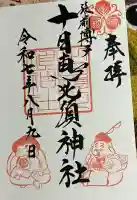 奉拝
筑前博多
十日恵比須神社
令和七年八月九日